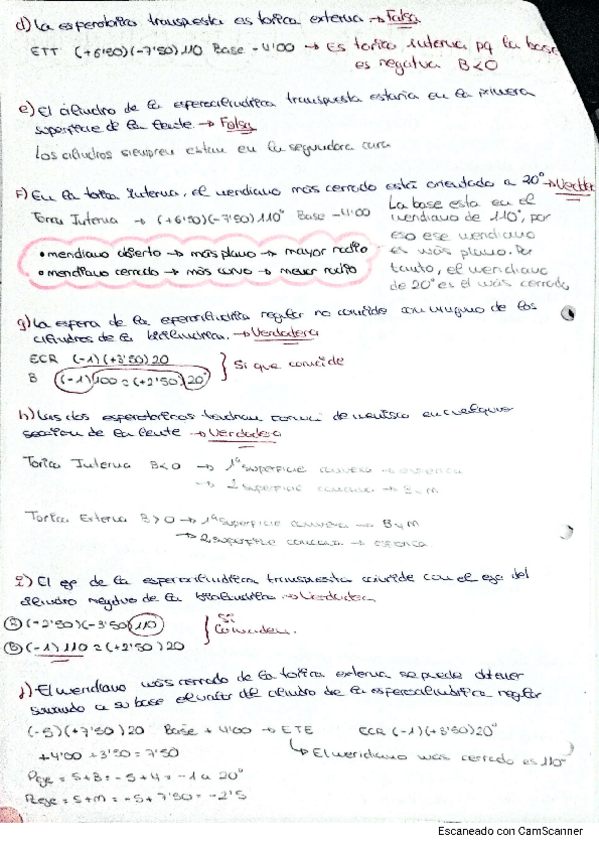 d) La esferotórica transpuesta es tórica externa → Falsa
ETT (+6'50)(-7'50)110 Base -4'00 → Es tórica interna pq la base
es negativa B<0
e) El cilindro de la esferocilíndrica transpuesta estaría en la primera
superficie de la lente → Falsa
Los cilindros siempre están en la segundora cara
F) En la tórica interna, el meridiano más cerrado está orientado a 20° →
Torica Interna → (+6'50)(-7'50)110° Base -4'00
La base esta en el
meridiano de 110°, por
eso ese meridiano
es más plano. Por
tanto, el meridiano
de 20° es el más cerrado
• meridiano abierto → más plano → mayor radio
• meridiano cerrado → más curvo → menor radio
g) La esfera de la esferocilíndrica regular no coincide con ninguno de los
cilindros de la bicilíndrica. → Verdadera
ECR (-1)(+3'50)20
B (-1)100 = (+2'50)20°
Si que coincide
h) Las dos esferotóricas tendrían forma de menisco en cualquier
sección de la lente → Verdadera
Torica Interna B<0 → 1ª superficie convexa → esférica
→ 2 superficie concava → B y M
Torica Externa B>0 → 1ª superficie convexa → B y M
→ 2 superficie concava → esferica
i) El eje de la esferocilíndrica transpuesta coincide con el eje del
cilindro negativo de la bicilíndrica → Verdadera
(-2'50)(-3'50)110
(-1)110 = (+2'50)20
Si
Coinciden.
j) El meridiano más cerrado de la tórica externa se puede obtener
sumando a su base el valor del cilindro de la esferocilíndrica regular
(-5)(+7'50)20 Base +4'00 → ETE ECR (-1)(+3'50)20°
+4'00 +3'50 = 7'50
→ El meridiano más cerrado es 110°
Peje = S+B = -5+4 = -1 a 20°
= S+M = -5+7'50 = -2'5
Escaneado con CamScanner